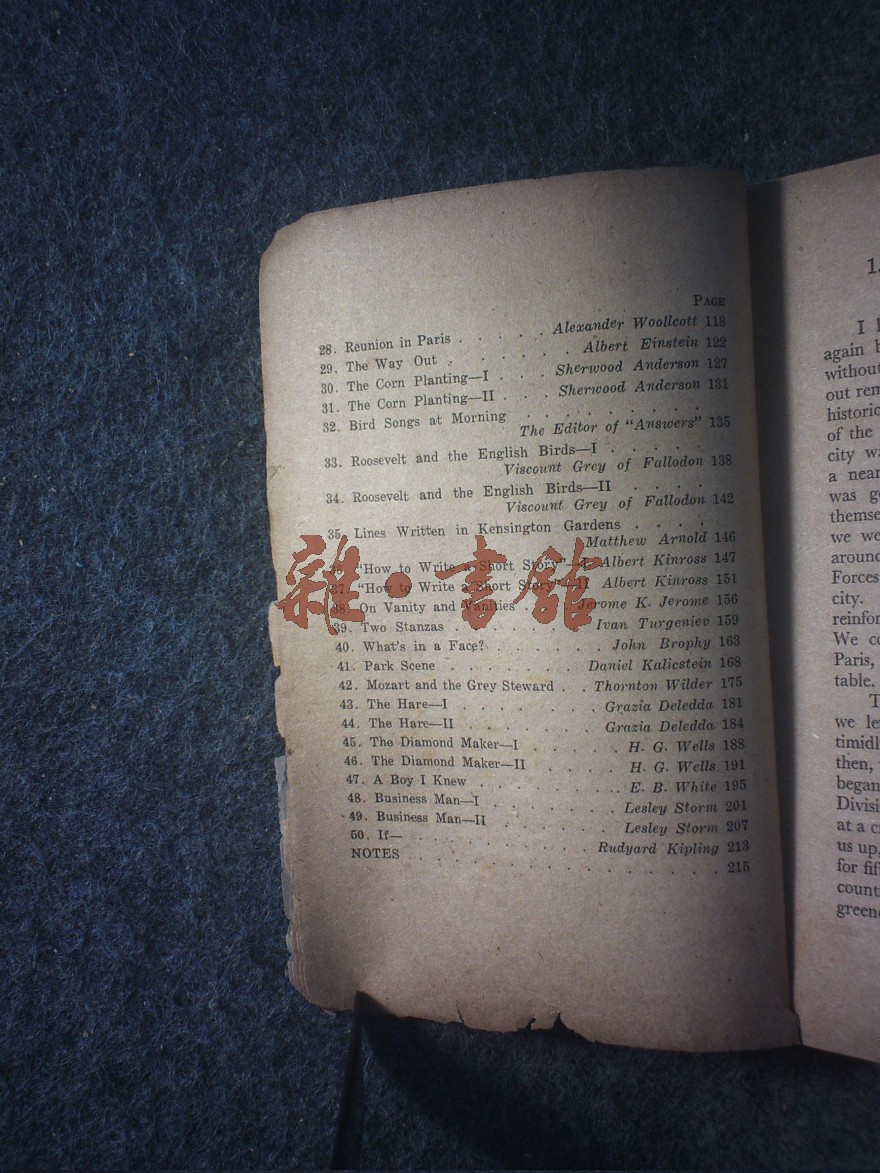 PAGE
28. Reunion in Paris . . . . . Alexander Woollcott 118
29. The Way Out . . . . . . Albert Einstein 122
30. The Corn Planting—I . . . Sherwood Anderson 127
31. The Corn Planting—II . . . Sherwood Anderson 131
32. Bird Songs at Morning . . . . . . . . .
The Editor of "Answers" 135
33. Roosevelt and the English Birds—I . . . . .
Viscount Grey of Fallodon 138
34. Roosevelt and the English Birds—II . . . .
Viscount Grey of Fallodon 142
35. Lines Written in Kensington Gardens . . . .
Matthew Arnold 146
36. "How to Write a Short Story"—I Albert Kinross 147
37. "How to Write a Short Story"—II Albert Kinross 151
38. On Vanity and Vanities . . Jerome K. Jerome 156
39. Two Stanzas . . . . . . . Ivan Turgeniev 159
40. What's in a Face? . . . . . . John Brophy 163
41. Park Scene . . . . . . . Daniel Kalicstein 168
42. Mozart and the Grey Steward . . Thornton Wilder 175
43. The Hare—I . . . . . . . Grazia Deledda 181
44. The Hare—II . . . . . . . Grazia Deledda 184
45. The Diamond Maker—I . . . . . H. G. Wells 188
46. The Diamond Maker—II . . . . H. G. Wells 191
47. A Boy I Knew . . . . . . . . E. B. White 195
48. Business Man—I . . . . . . . Lesley Storm 201
49. Business Man—II . . . . . . Lesley Storm 207
50. If— . . . . . . . . . Rudyard Kipling 213
NOTES . . . . . . . . . . . . . 215
雜·書館
1.
I
again
without
out rem
historic
of the
city wa
a near
was g
themse
we we
around
Forces
city.
reinfor
We co
Paris,
table.
T
we le
timidl
then,
began
Divisi
at a c
us up,
for fif
count
green